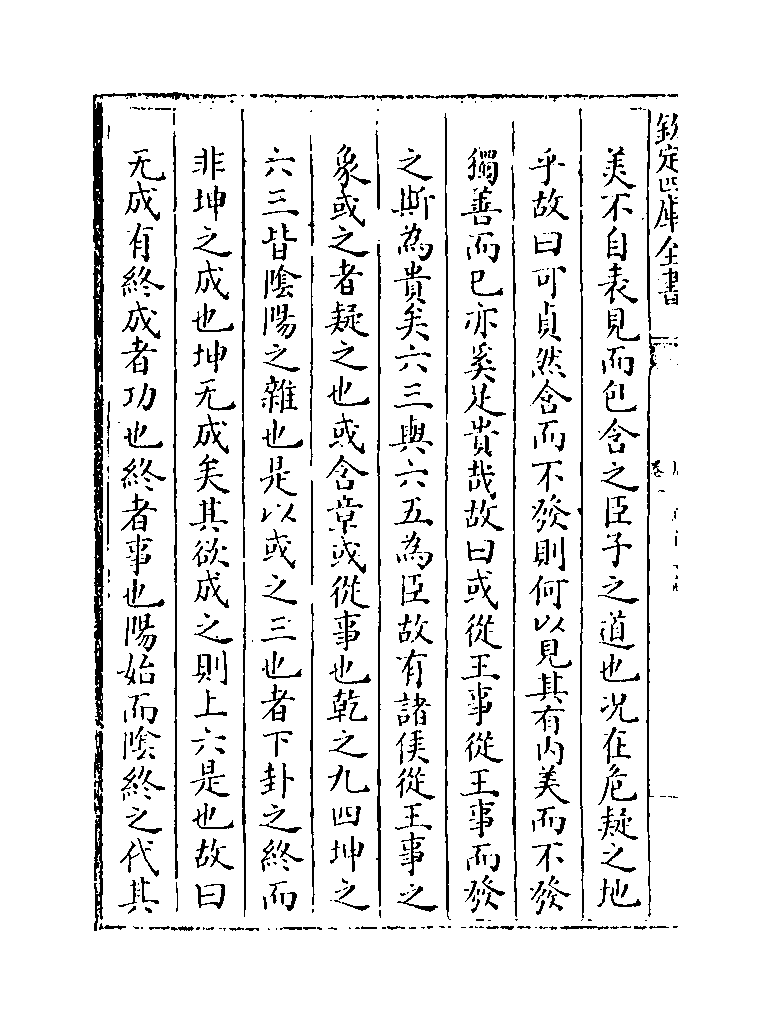 欽定四庫全書
美不自表見而包含之臣子之道也况在危疑之地
乎故曰可貞然含而不發則何以見其有内美而不發
獨善而已亦奚足貴哉故曰或從王事從王事而發
之斯為貴矣六三與六五為臣故有諸侯從王事之
象或之者疑之也或含章或從事也乾之九四坤之
六三皆陰陽之雜也是以或之三也者下卦之終而
非坤之成也坤无成矣其欲成之則上六是也故曰
无成有終成者功也終者事也陽始而陰終之代其